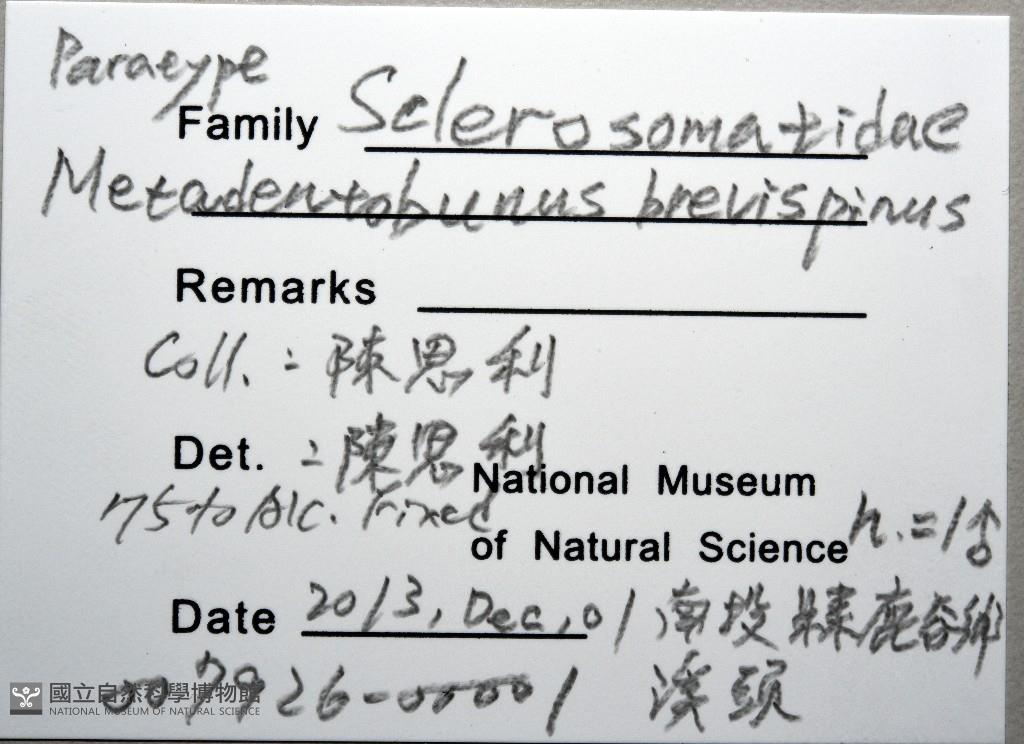 Paratype
Family Sclerosomatidae
Metadentobunus brevispinus
Remarks
Coll. : 陳思利
Det. : 陳思利
75% Alc. Fixed
National Museum
of Natural Science n.=1♂
Date 2013, Dec, 01 南投縣鹿谷鄉
溪頭
國立自然科學博物館
NATIONAL MUSEUM OF NATURAL SCIENCE